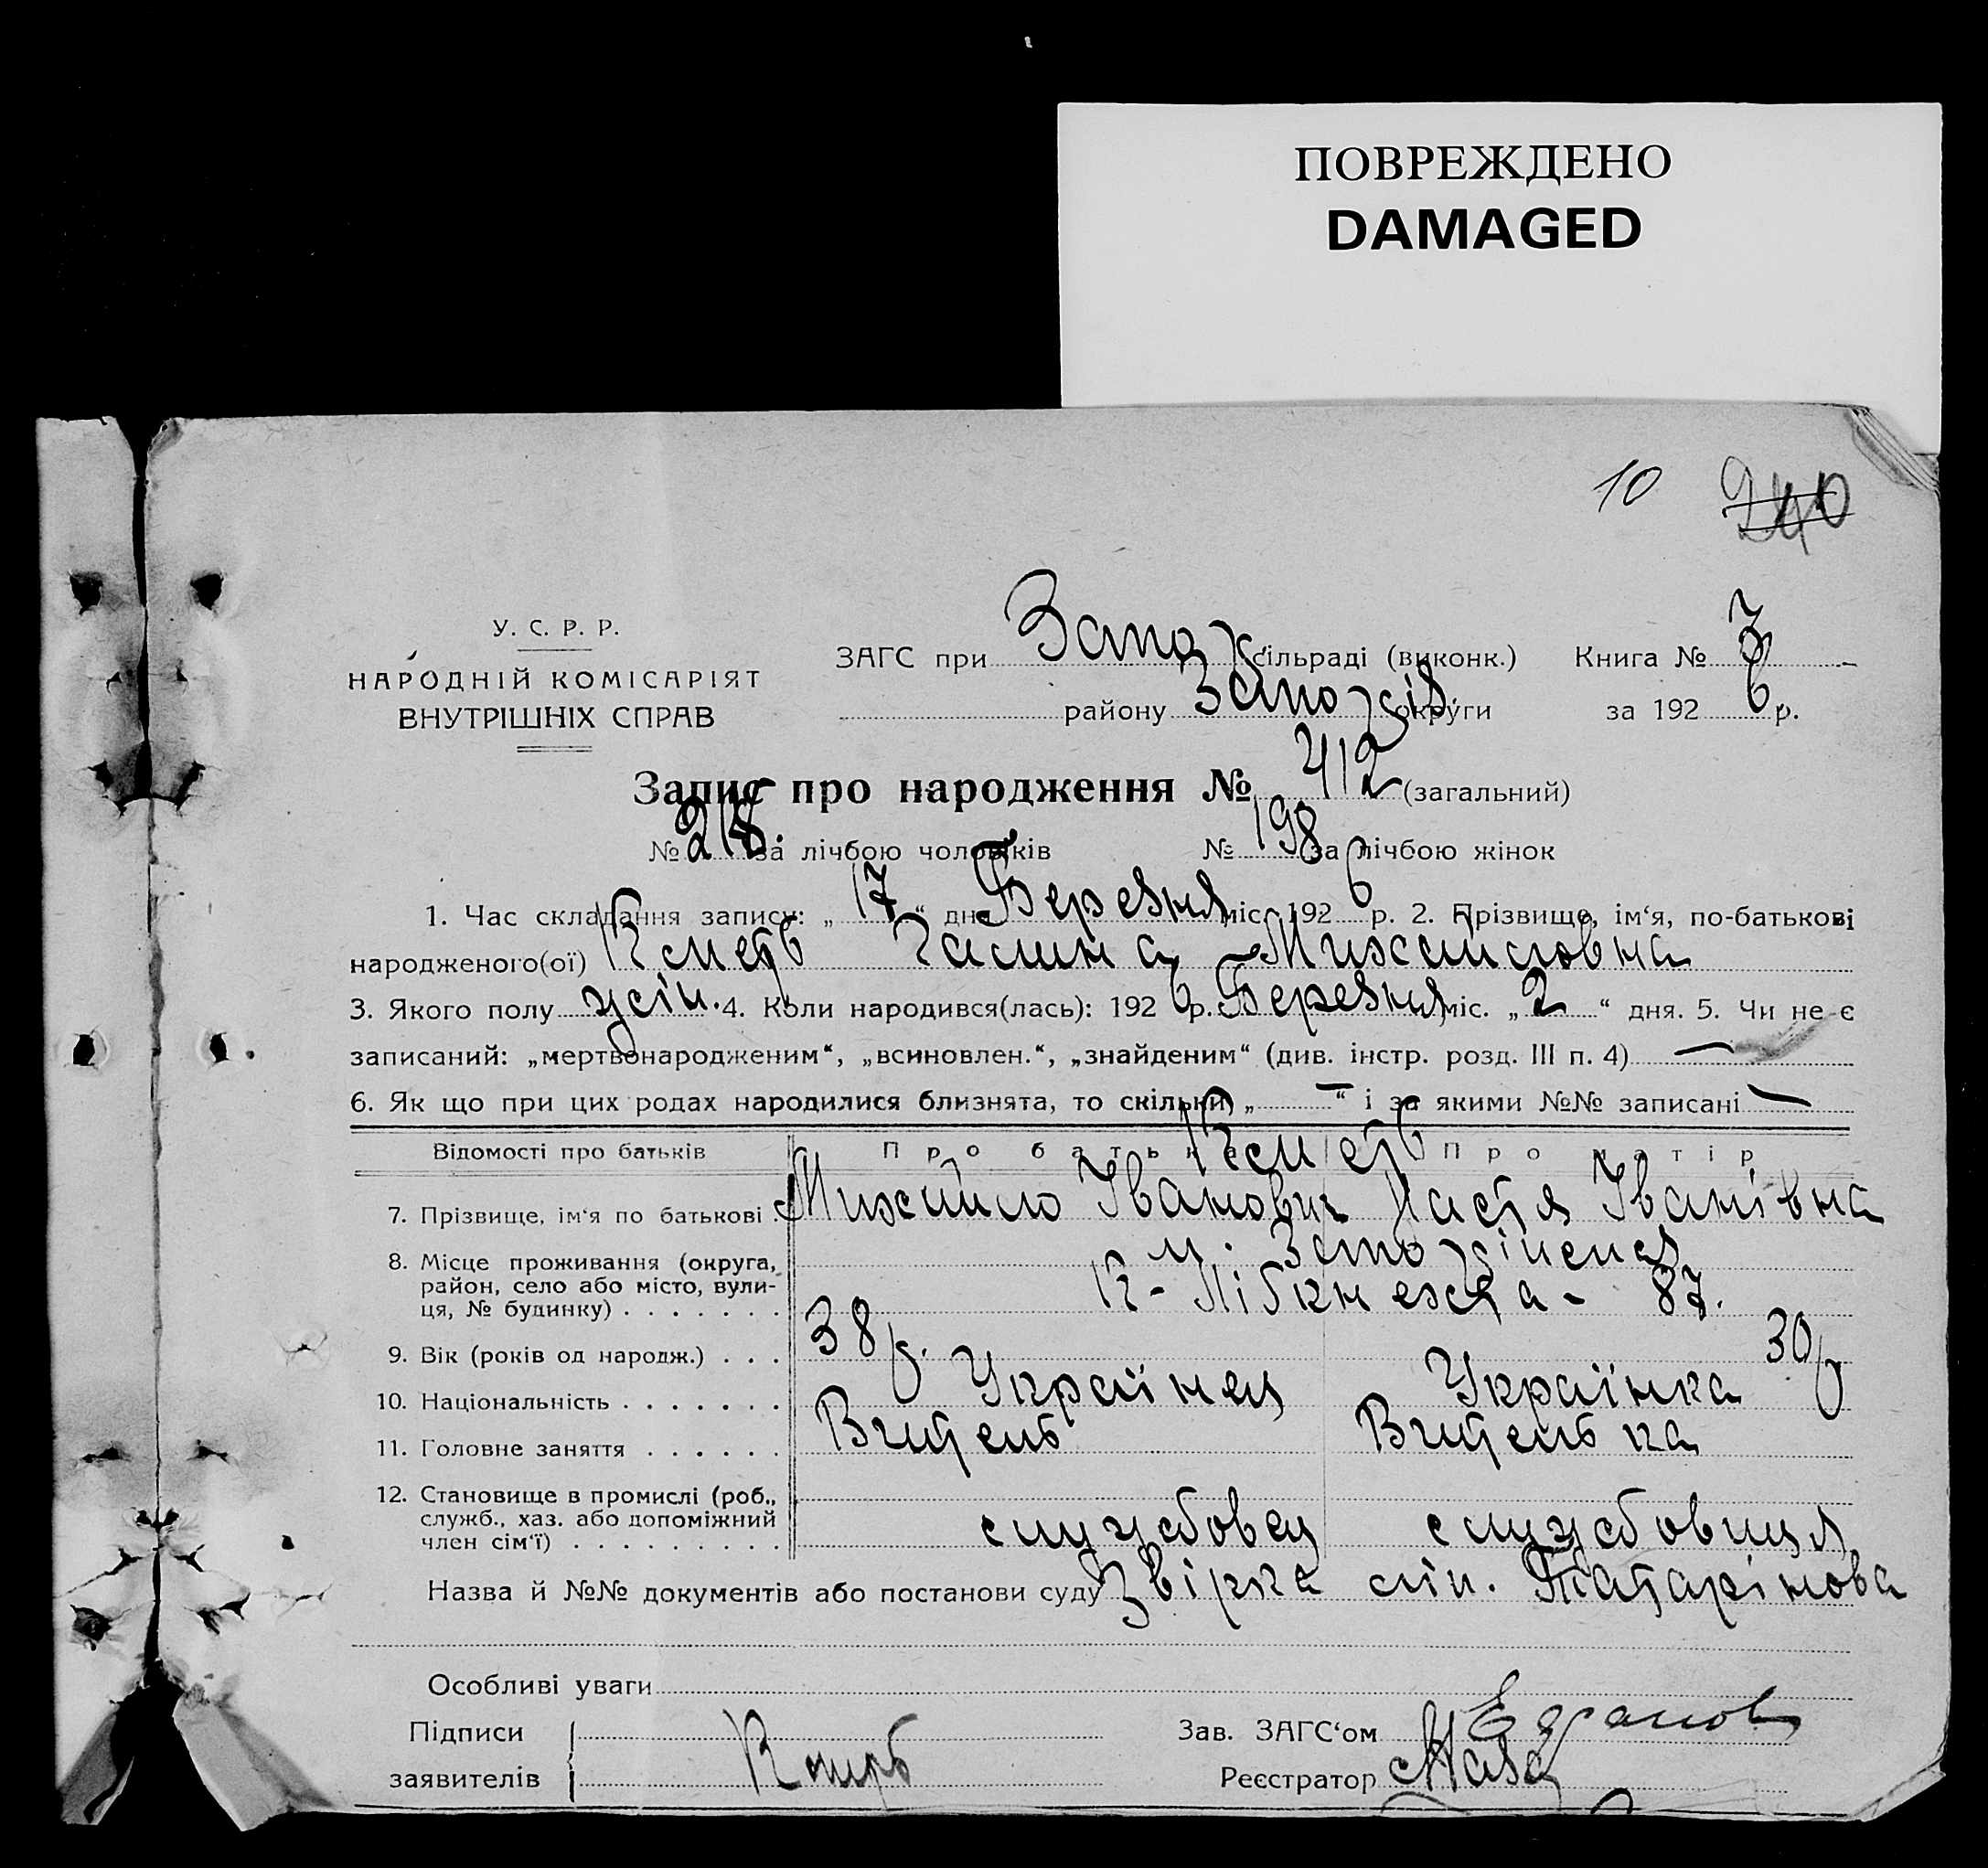 ПОВРЕЖДЕНО
DAMAGED
10 240
У. С. Р. Р.
НАРОДНІЙ КОМІСАРІЯТ
ВНУТРІШНІХ СПРАВ
ЗАГС при Запо сільраді (виконк.) Книга № 3
району Запоріз округи за 1926 р.
Запис про народження № 412 (загальний)
№ за лічбою чоловіків № 198 за лічбою жінок
1. Час складання запису: „17“ дн. Березня міс. 1926 р. 2. Прізвище, ім‘я, по-батькові
народженого(ої) Кметь Галина Михайловна
3. Якого полу жін. 4. Коли народився(лась): 1926 р. Березня міс. „2“ дня. 5. Чи не є
записаний: „мертвонародженим“, „всиновлен.“, „знайденим“ (див. інстр. розд. III п. 4) —
6. Як що при цих родах народилися близнята, то скільки „—“ і за якими №№ записані —
Відомості про батьків Про батька Про матір
Кметь
7. Прізвище, ім‘я по батькові . Михайло Іванович Настя Іванівна
8. Місце проживання (округа,
район, село або місто, вули-
ця, № будинку) . . . . . . .
м. Запоріжжя
К-Лібкнехта - 87.
9. Вік (років од народж.) . . . 38 р. 30 р
10. Національність . . . . . . . Українец Українка
11. Головне заняття . . . . . . Вчитель Вчителька
12. Становище в промислі (роб.,
служб., хаз. або допоміжний
член сім‘ї) . . . . . . . . .
службовец службовиця
Назва й №№ документів або постанови суду Звірка Татарінова
Особливі уваги
Підписи
заявителів Кметь
Зав. ЗАГС‘ом
Реєстратор